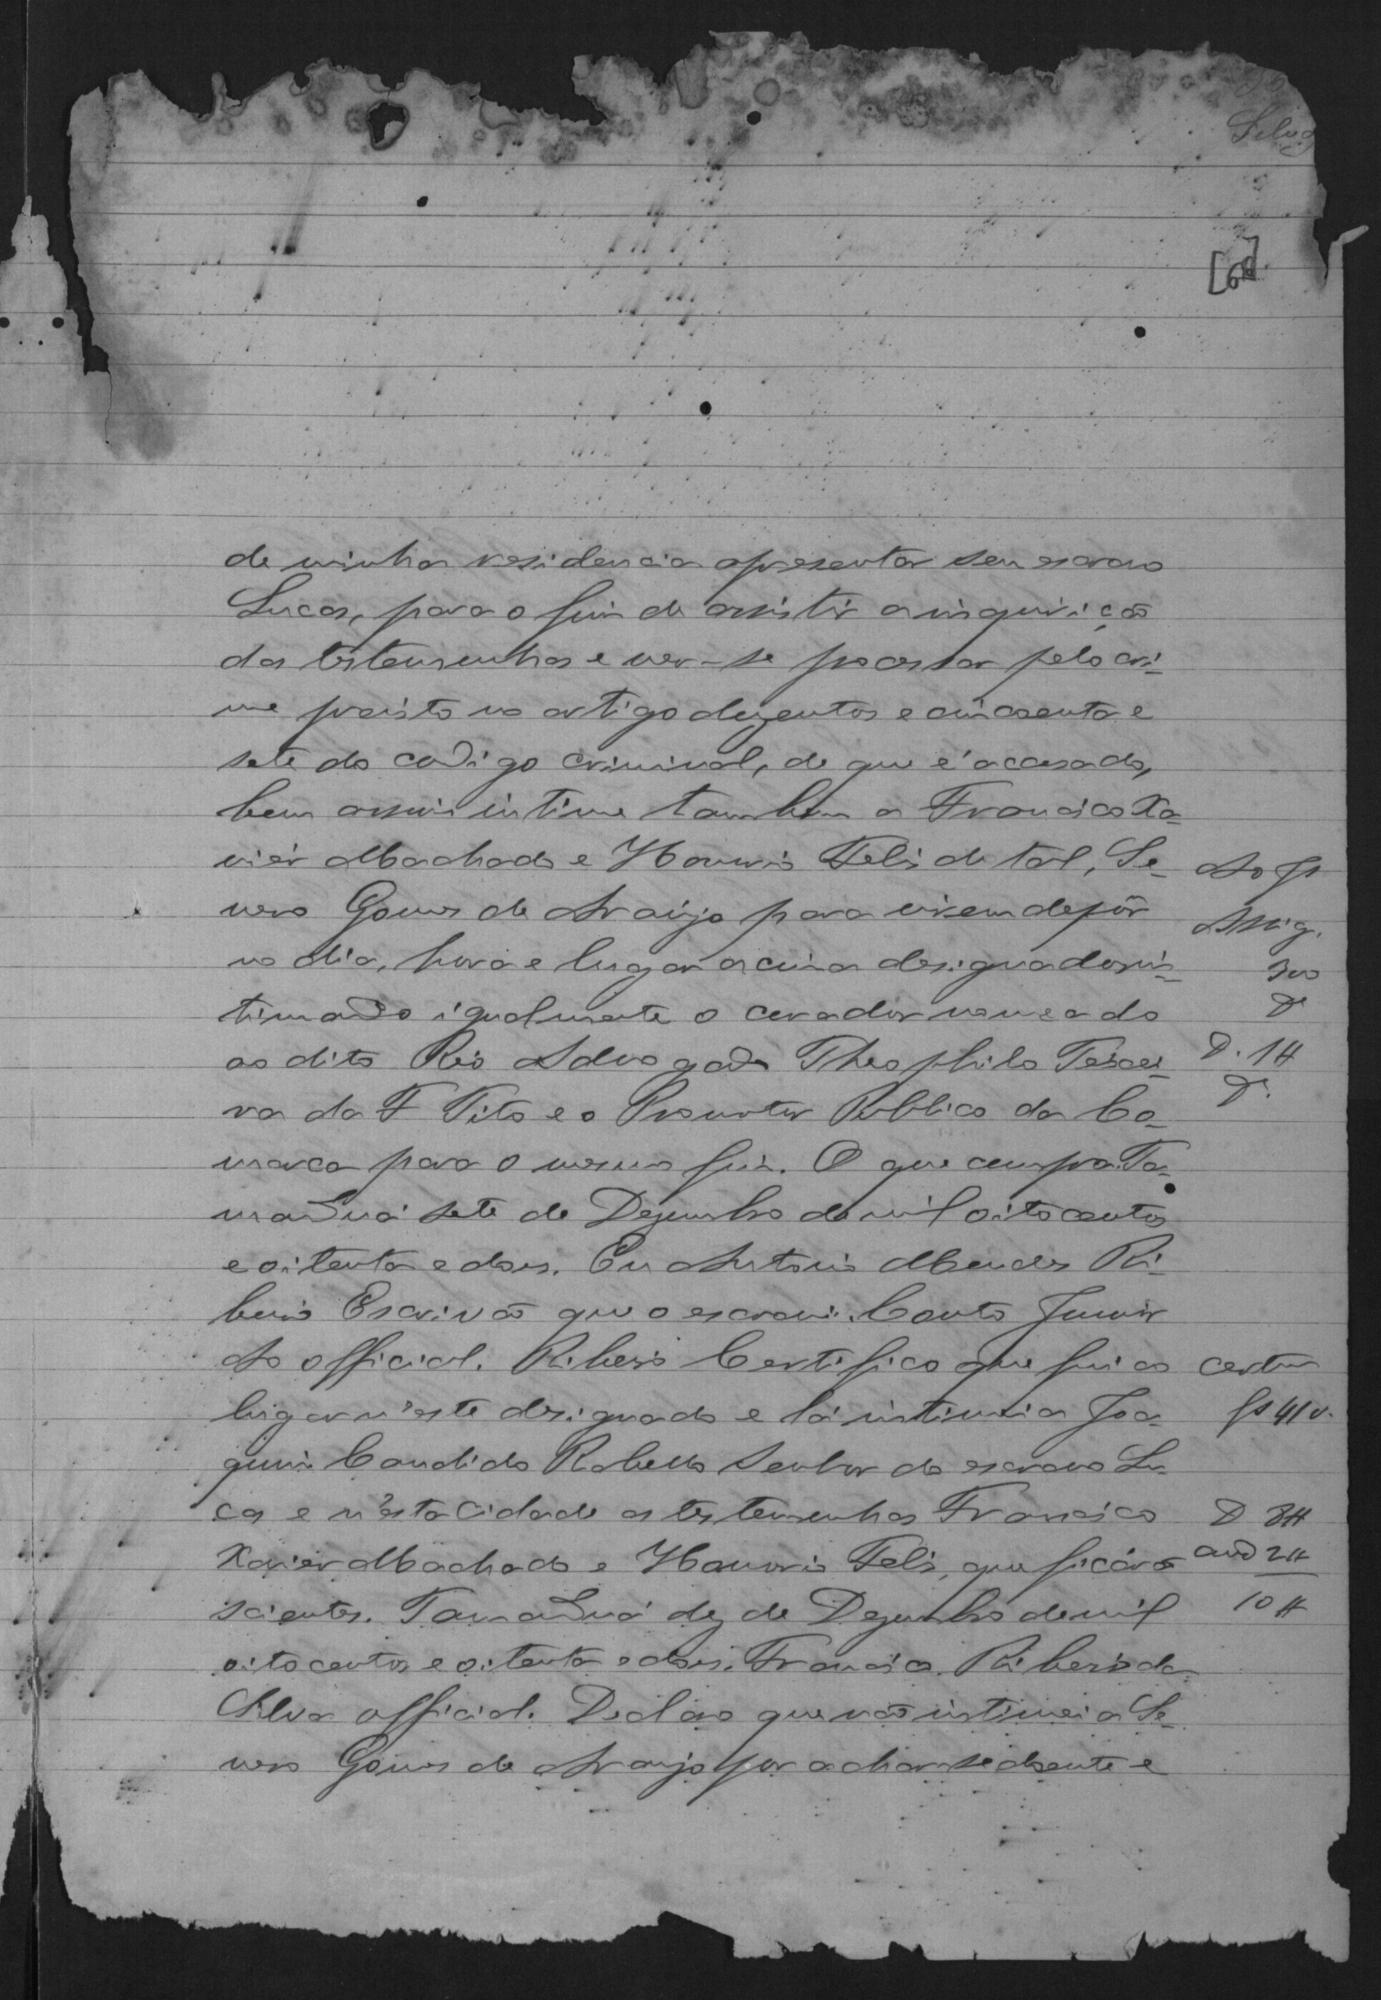 Silva
[69]
de minha residencia apresentar seu escravo
Lucas, para o fim de assistir a inquirição
das testemunhas e ver-se processar pelo cri-
me previsto no artigo duzentos e cincoenta e
sete do codigo criminal, de que é accusado,
bem assim intime tambem a Francisco Xa-
viér Machado e Honorio Felis de tal, Se-
vero Gomes de Araujo para virem depôr
no dia, hora e lugar acima designados in-
timando igualmente o curador nomeado
ao dito Réo Advogado Theophilo
va da F Tito e o Promotor Publico da Co-
marca para o mesmo fim. O que cumpra. Ta-
manduá sete de Dezembro de mil oito centos
e oitenta e dois. Eu Antonio Mendes Ri-
beiro Escrivão que o escrevi. Couto Junior
Ao official. Ribeiro Certifico que fui ao
lugar n'este designado e lá intimei a Joa-
quim Candido Rabello Senhor do escravo Lu-
cas e n'esta cidade as testemunhas Francisco
Xavier Machado e Honorio Felis, que ficárão
scientes. Tamanduá dez de Dezembro de mil
oito centos e oitenta e dois. Francisco Ribeiro da
Silva official. Declaro que não intimei a Se-
vero Gomes de Araujo por achar-se doente e
Ao Js
Assig.
300
D. 1H
fs 41 v.
D 8H
and 2H
10 H